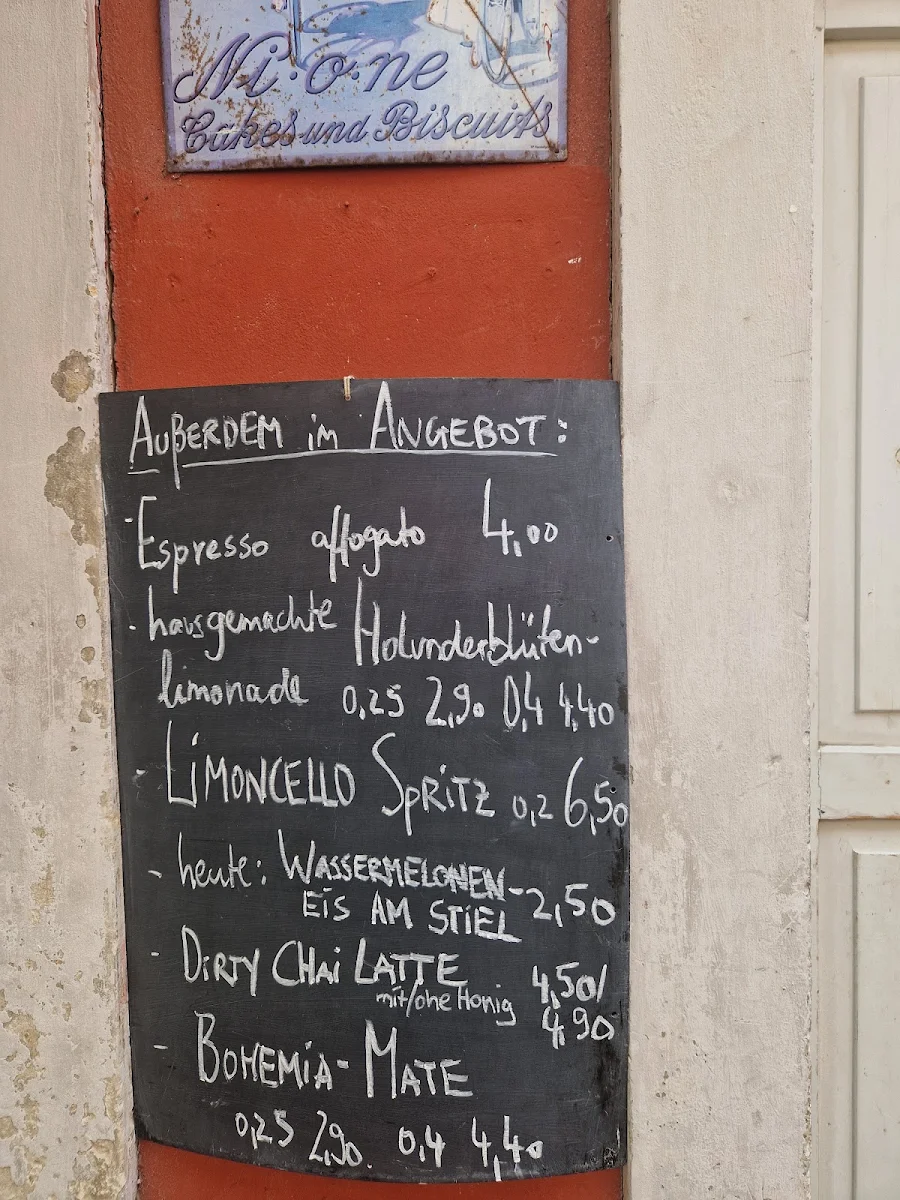 Ni·o·ne
Cakes und Biscuits
AUßERDEM im ANGEBOT:
- Espresso affogato 4,00
- hausgemachte Holunderblüten-
limonade 0,25 2,90 0,4 4,40
- LIMONCELLO SPRITZ 0,2 6,50
- heute: WASSERMELONEN-
EIS AM STIEL 2,50
- DIRTY CHAI LATTE 4,50/
mit/ohne Honig 4,90
- BOHEMIA-MATE
0,25 2,90. 0,4 4,40